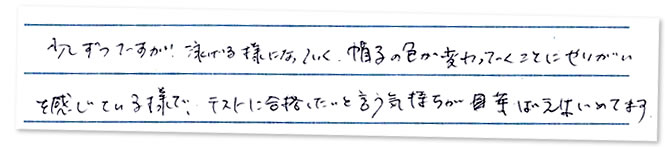 少しずつですが泳げる様になっていく、帽子の色が変わっていくことにやりがい
を感じている様で、テストに合格したいと言う気持ちが目芽ばえはじめてます